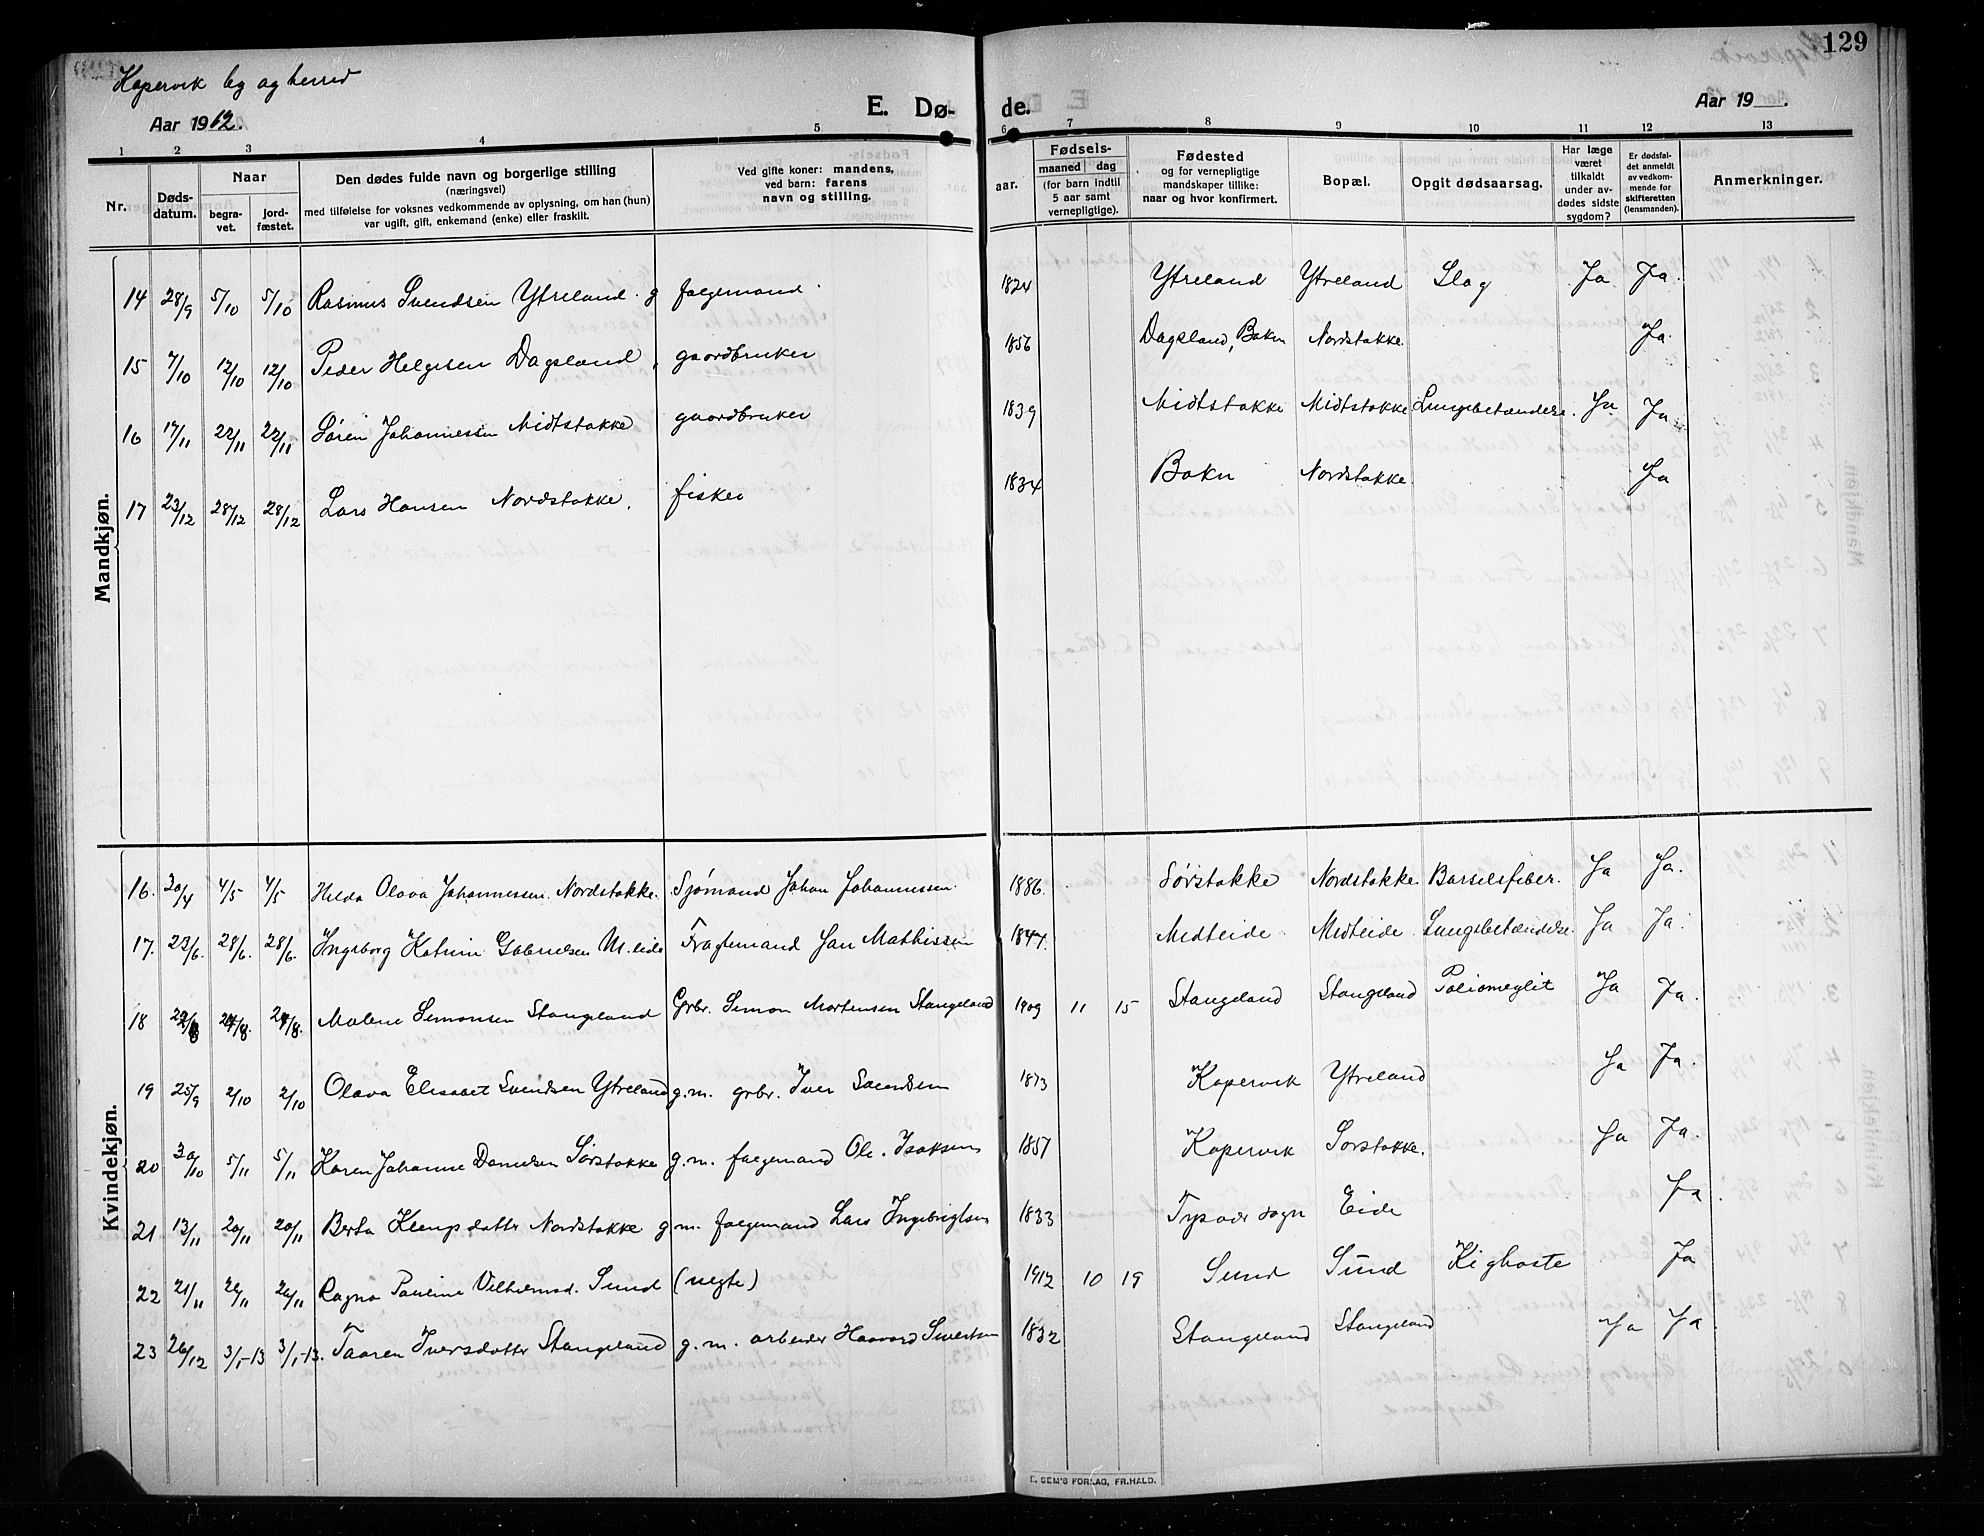 129
Kopervik by og herred
E. Dø- de.
Aar 1912. Aar 19 .
1 2 3 4 5 6 7 8 9 10 11 12 13
Nr. Dødsdatum. Naar begravet. jordfæstet. Den dødes fulde navn og borgerlige stilling (næringsvei) med tilføielse for voksnes vedkommende av oplysning, om han (hun) var ugift, gift, enkemand (enke) eller fraskilt. Ved gifte koner: mandens, ved barn: farens navn og stilling. Fødselsaar. maaned dag (for barn indtil 5 aar samt vernepligtige). Fødested og for vernepligtige mandskaper tillike: naar og hvor konfirmert. Bopæl. Opgit dødsaarsag. Har læge været tilkaldt under avdødes sidste sygdom? Er dødsfaldet anmeldt av vedkommende for skifteretten (lensmanden). Anmerkninger.
Mandkjøn.
14 28/9 5/10 5/10 Rasmus Svendsen Ytreland. g folgemand. 1824 Ytreland Ytreland Slag Ja Ja.
15 7/10 12/10 12/10 Peder Helgesen Dagsland, gaardbruker 1856 Dagsland, Bokn Nordstokke Ja.
16 17/11 22/11 22/11 Søren Johannessen Midtstokke gaardbruker 1839 Midtstokke Midtstokke Lungebetændelse. Ja Ja
17 23/12 28/12 28/12 Lars Hansen Nordstokke. fisker 1834 Bokn Nordstokke Ja
Kvindekjøn.
16. 30/4 4/5 4/5 Hilda Olava Johannessen. Nordstokke. Sjømand Johan Johannessen. 1886. Sørstokke Nordstokke. Barselsfeber. Ja Ja.
17. 23/6. 28/6. 28/6. Ingeborg Katrine Gabrielsen M.eide Fragtemand Jan Mathissen 1844. Medleide Medleide Lungebetændelse Ja Ja.
18 /8 /8. /8. Malene Simonsen Stangeland Grbr. Simon Mortensen Stangeland 1909 11 15 Stangeland Stangeland Poliomeylit Ja Ja.
19 25/9 2/10 2/10 Olava Elisabet Svendsen Ytreland g.m. grbr. Iver Svendsen 1873 Kopervik Ytreland Ja Ja.
20 30/10 5/11 5/11 Karen Johanne Danielsen Sørstokke g.m. folgemand Ole. Isaksen 1857 Kopervik Sørstokke. Ja Ja.
21 13/11 20/11 20/11 Berta Klempsdatter Nordstokke g.m. folgemand Lars Ingebrigtsen 1833 Tysvær sogn Eide Ja.
22 21/11 26/11 26/11 Ragna Pauline Vilhelmsd. Sund (uegte) 1912 10 19 Sund Sund Kighoste Ja
23 26/12 3/1-13 3/1-13. Taaren Iversdatter Stangeland g.m. arbeider Haavard Sivertsen 1832 Stangeland Stangeland Ja Ja.
E. SEM'S FORLAG, FR.HALD.